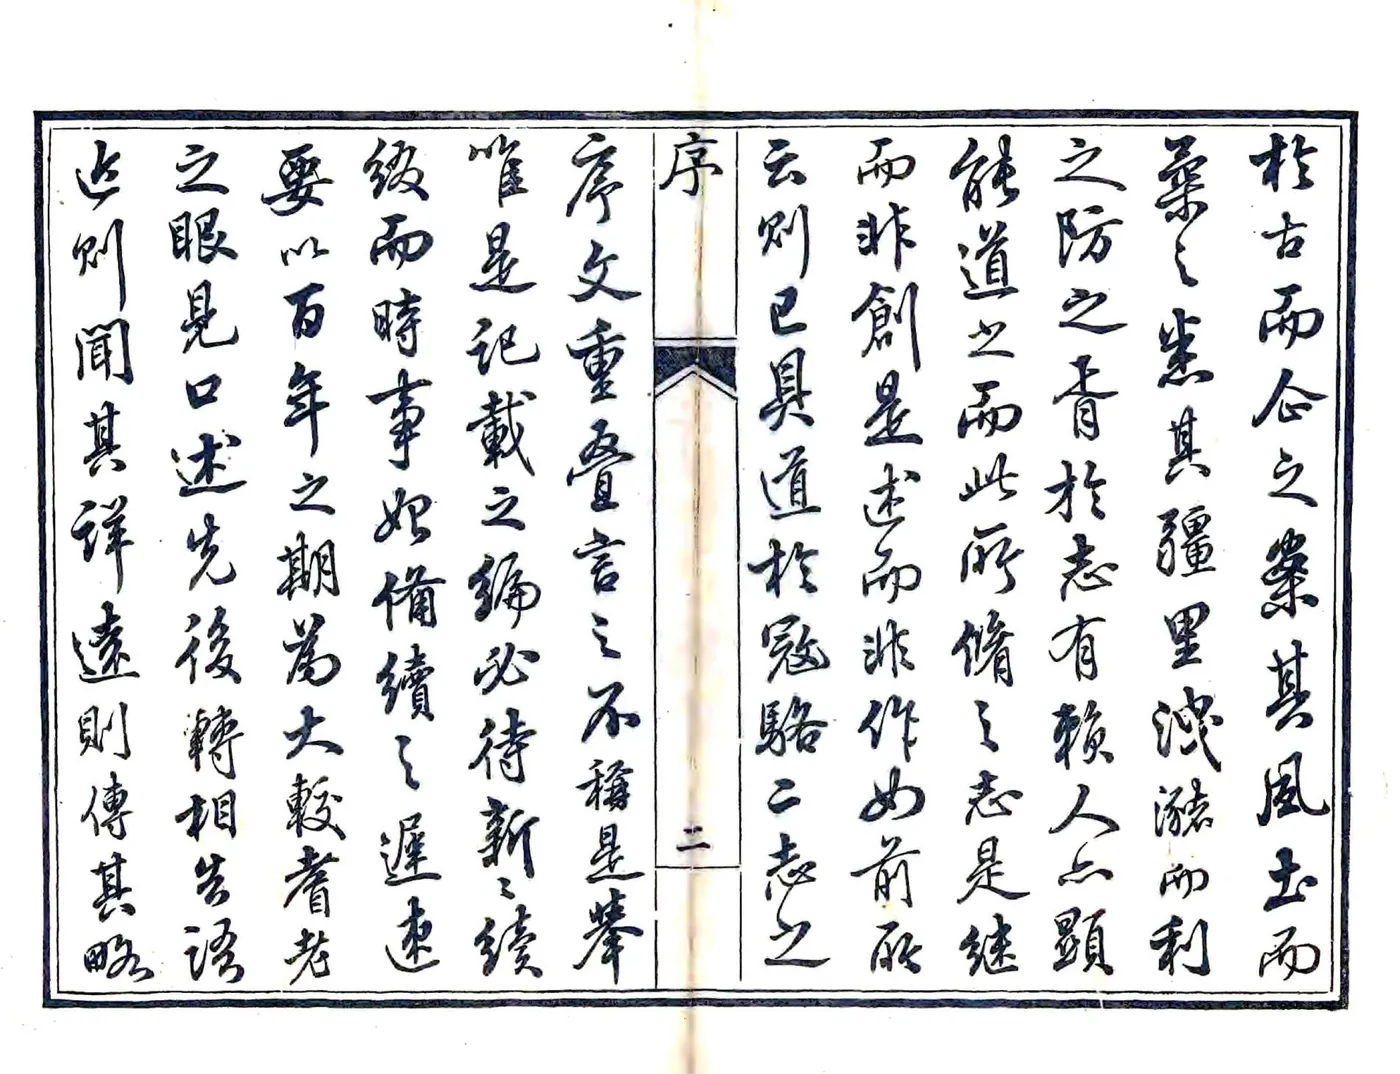 於古而企之察其風土而
藥之悉其疆里洩瀦而利
之防之胥於志有賴人亦顯
能道之而此所脩之志是繼
而非創是述而非作如前所
云則已具道於冦駱二志之
序
二
序文重叠言之不稱是舉
惟是記載之編必待新新續
綴而時事始備續之遲速
要以百年之期為大較耆老
之眼見口述先後轉相告語
近則聞其詳遠則傳其略